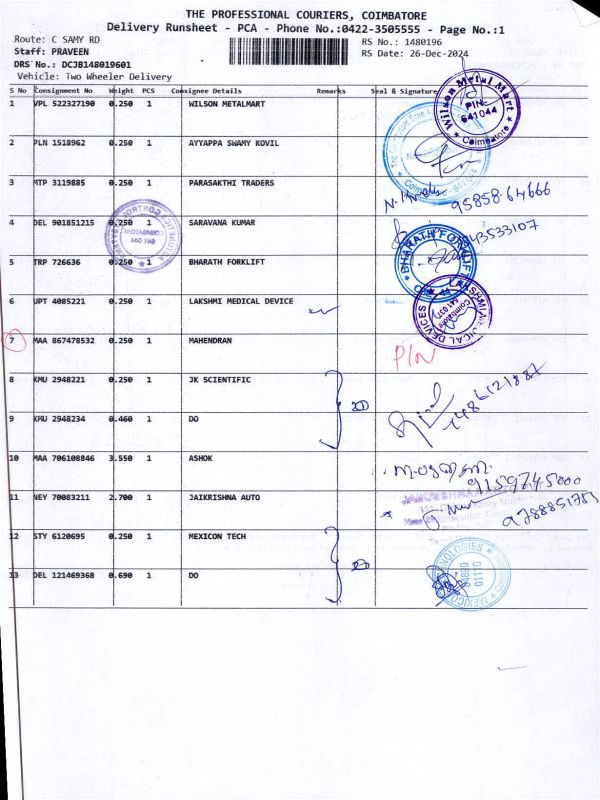 THE PROFESSIONAL COURIERS, COIMBATORE
Delivery Runsheet - PCA - Phone No.:0422-3505555 - Page No.:1
Route: C SAMY RD
RS No.: 1480196
Staff: PRAVEEN
RS Date: 26-Dec-2024
DRS No.: DCJB148019601
Vehicle: Two Wheeler Delivery
S No Consignment No Weight PCS Consignee Details Remarks Seal & Signature
1 VPL 522327190 0.250 1 WILSON METALMART
Wilson Metal Mart PIN 641044 Coimbatore
2 PLN 1518962 0.250 1 AYYAPPA SWAMY KOVIL
3 MTP 3119885 0.250 1 PARASAKTHI TRADERS
95858-64666
4 DEL 901851215 0.250 1 SARAVANA KUMAR
5 TRP 726636 0.250 1 BHARATH FORKLIFT
BHARATH FORKLIFT
6 UPT 4085221 0.250 1 LAKSHMI MEDICAL DEVICE
LAKSHMI MEDICAL DEVICES
7 MAA 867478532 0.250 1 MAHENDRAN
PIN
8 KMU 2948221 0.250 1 JK SCIENTIFIC
9 KMU 2948234 0.460 1 DO
10 MAA 706108846 3.550 1 ASHOK
9159745000
11 NEY 70083211 2.700 1 JAIKRISHNA AUTO
12 STY 6120695 0.250 1 MEXICON TECH
13 DEL 121469368 0.690 1 DO